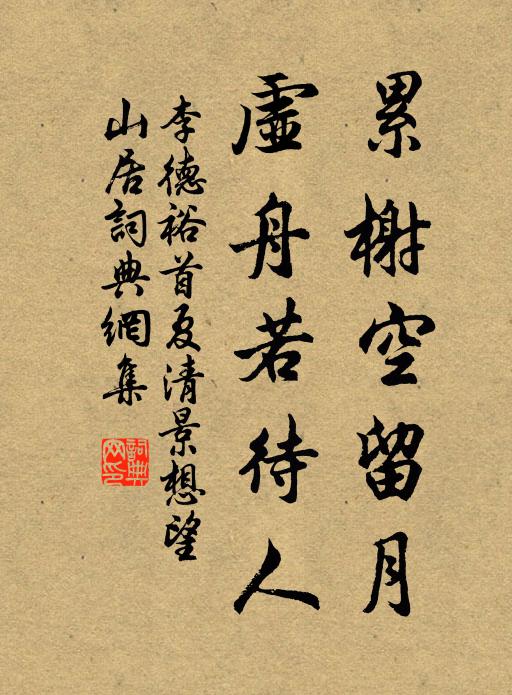 累榭空留月
虛舟若待人
李德裕首夏清景想望
山居詞典網集
詞典
网印